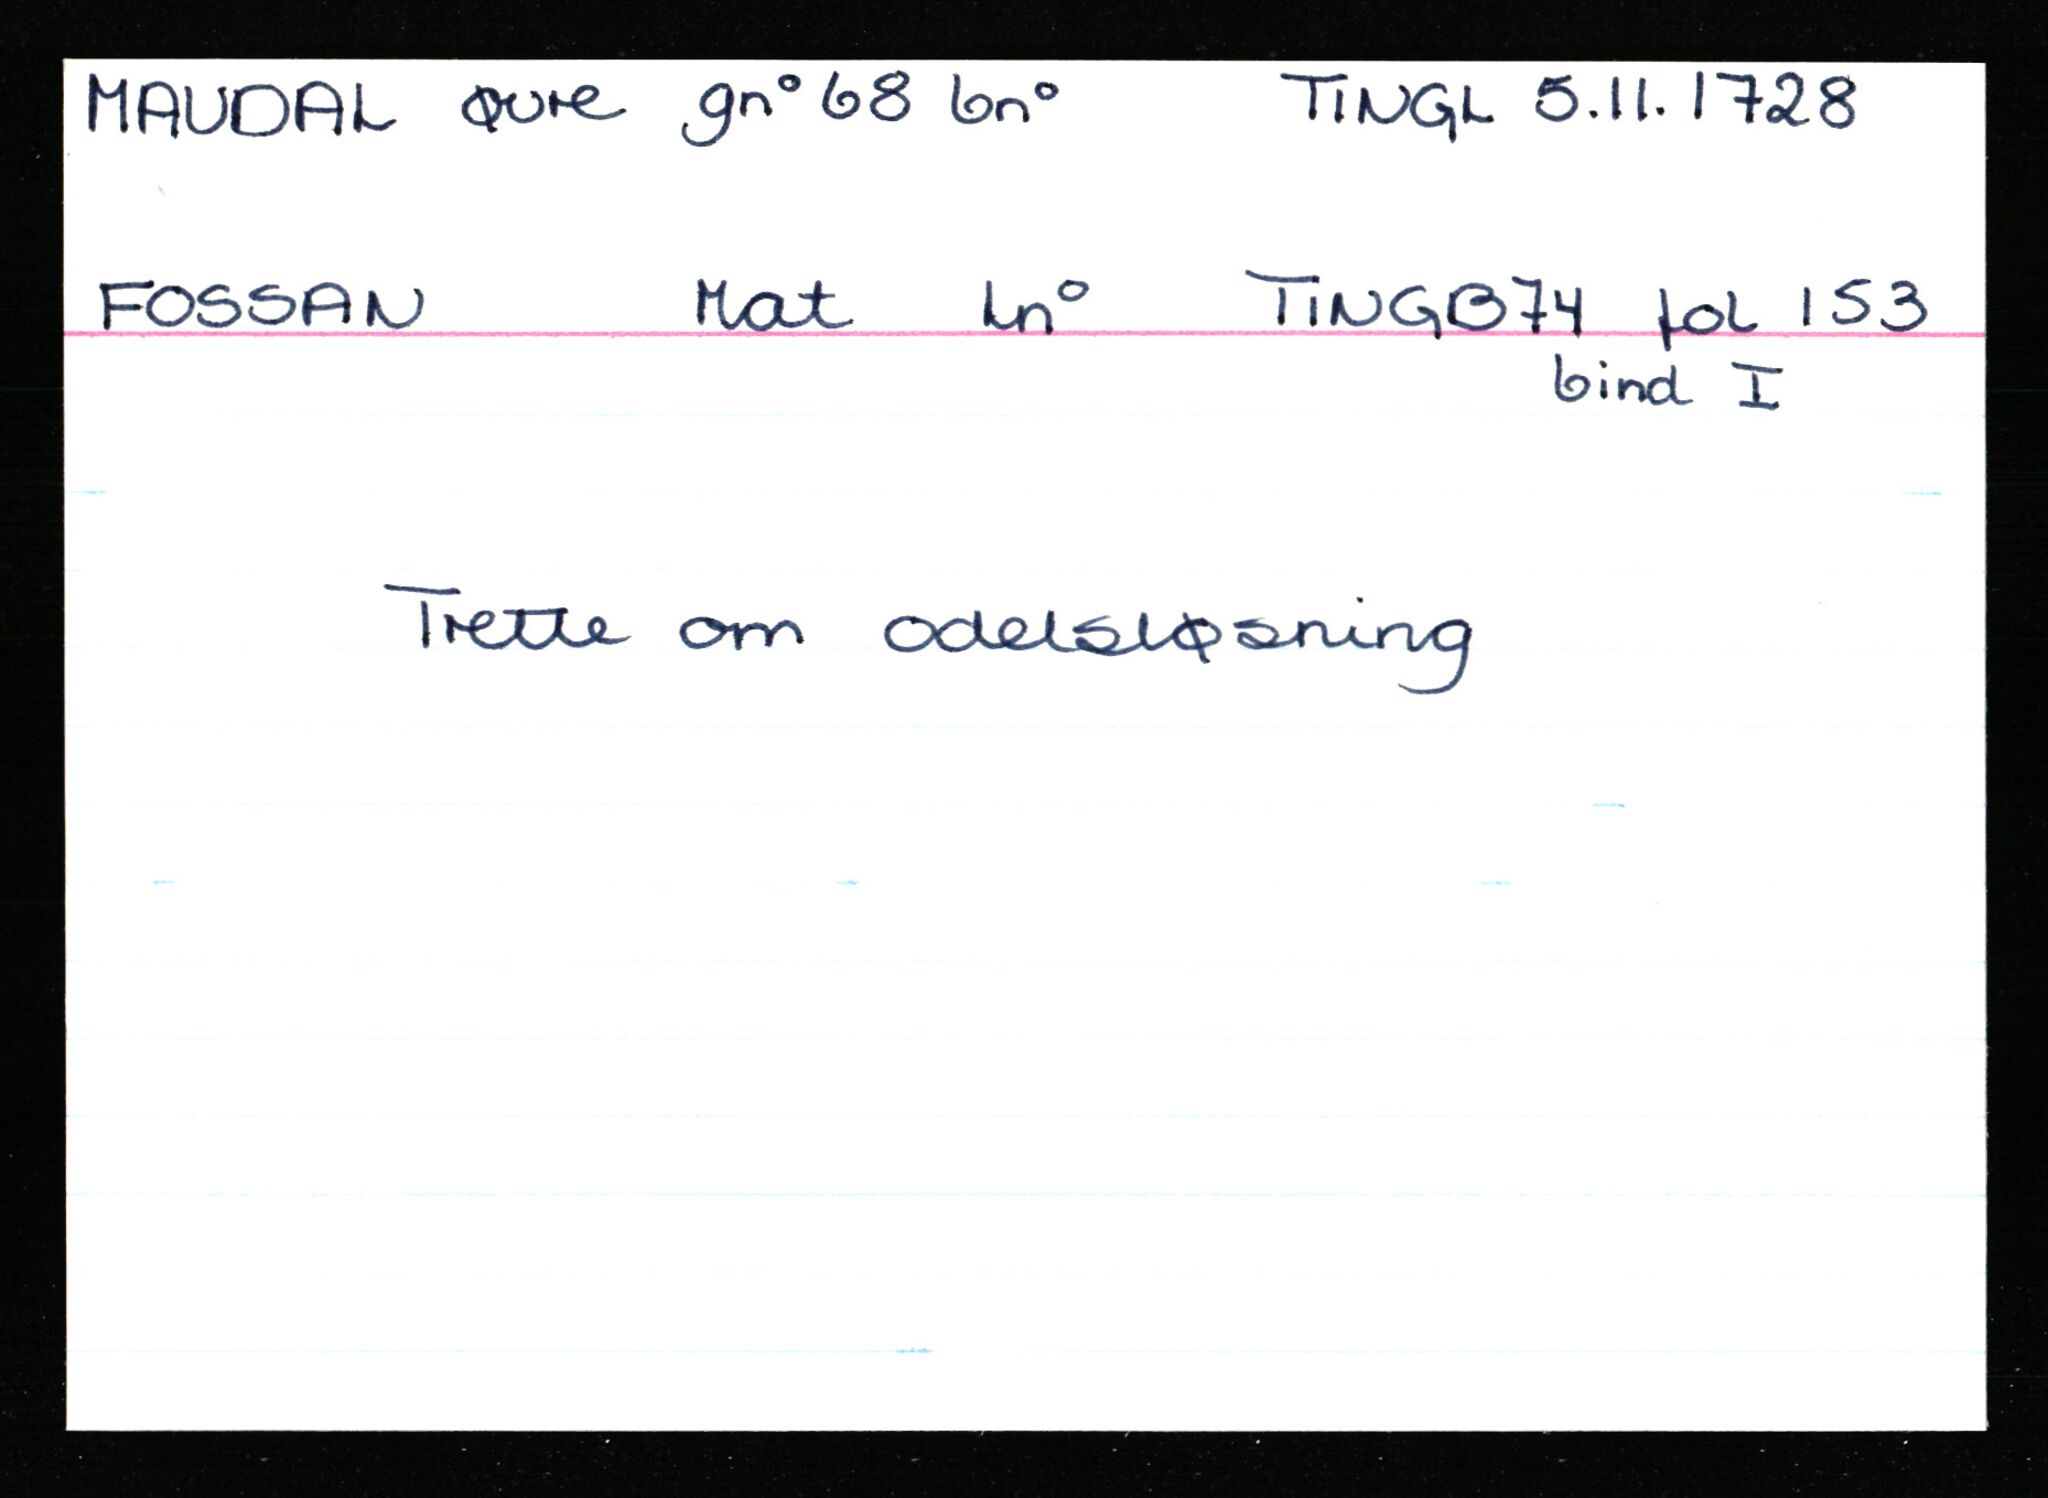 MAUDAL øvre gn° 68 bn° TINGL 5.11.1728
FOSSAN Mat Ln° TINGB 74 fol 153
bind I
Trette om odelsløsning